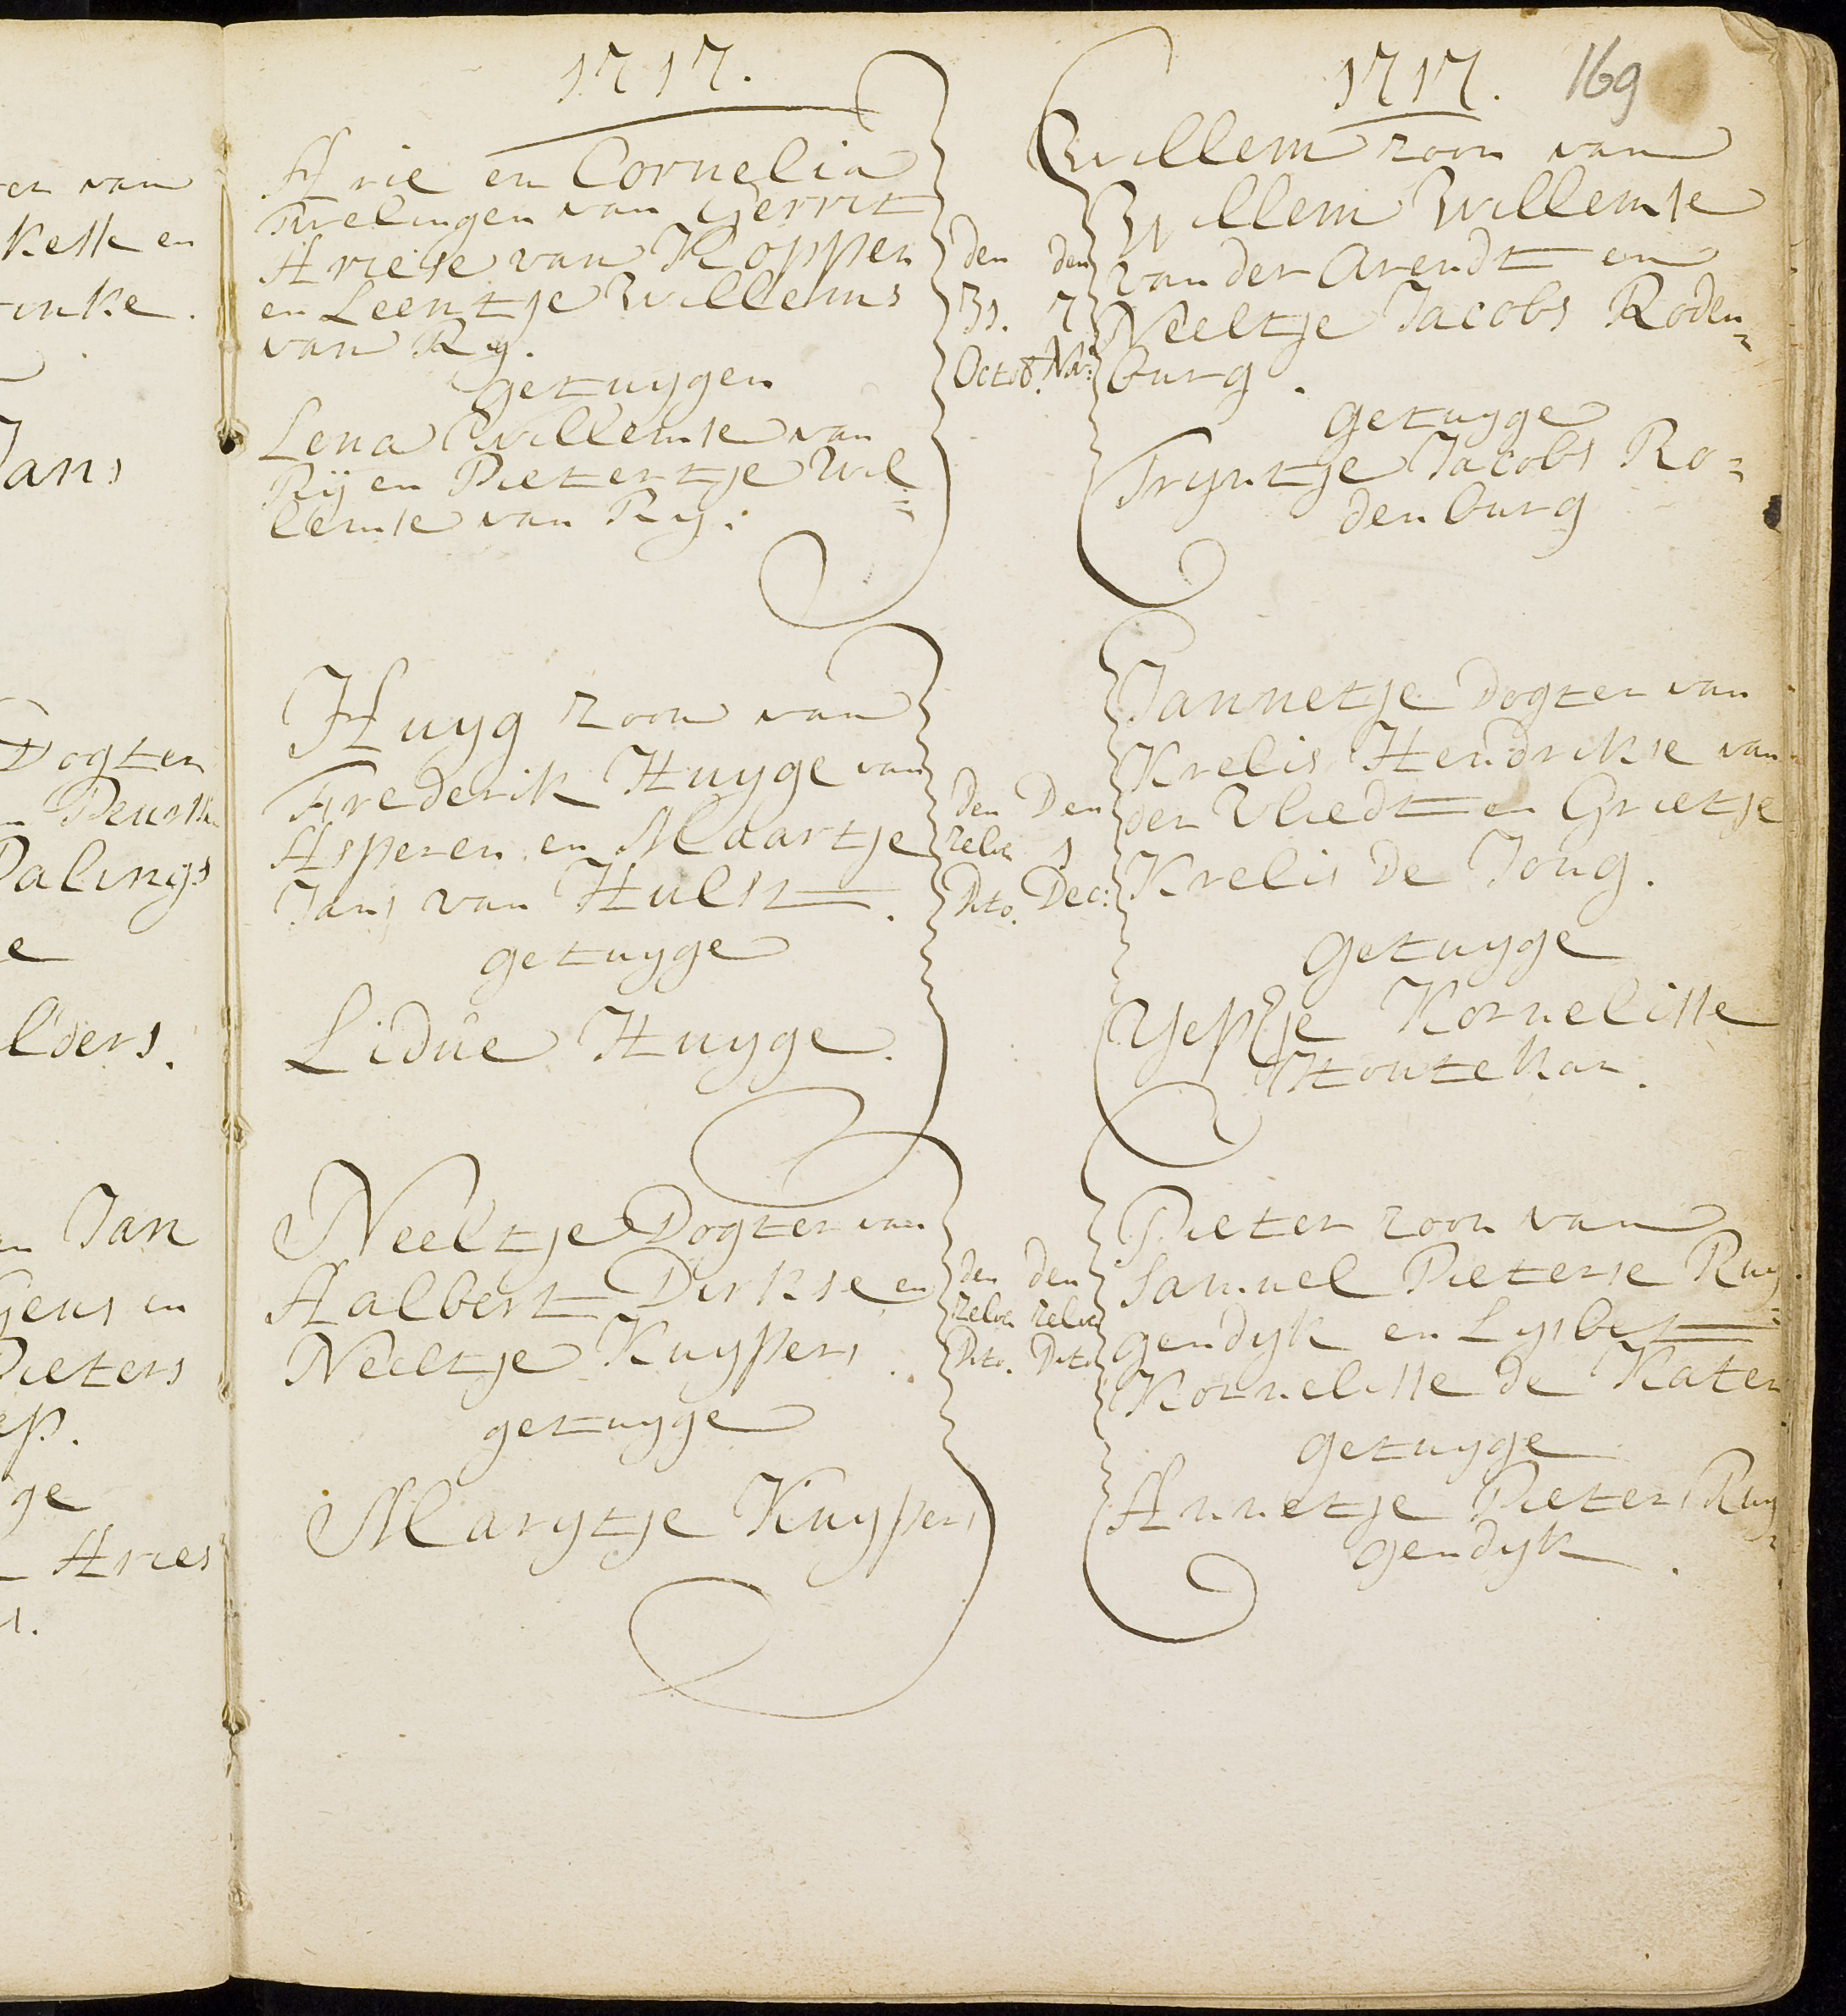 en van
Kesk en
inke.
Jans
Dogter
Dalings
e
lders.
Jan
Geus en
Pieters
ge
Aries
1717.
Arie en Cornelia
Twelingen van Gerrit
Ariese van Koppen
en Leentje Willems
van Ry.
getuygen
Lena Willemse van
Rij en Pietertje Wil=
lemse van Ry.
den
31.
Octo8.
Huyg zoon van
Frederik Huyge van
Asperen en Maartje
Jans van Hulst.
getuyge
Lidue Huyge.
den
zelve
Dito.
Neeltje Dogter van
Aalbert Dirkse en
Neeltje Kuypers.
getuyge
Marytje Kuypers
den
zelve
Dito.
1717. 169
Willem zoon van
Willem Willemse
van der Arendt en
Neeltje Jacobs Roden=
burg.
getuyge
Tryntje Jacobs Ro=
denburg
den
7
Nov:
Jannetje Dogter van
Krelis Hendrikse van
der Vliedt en Grietje
Krelis de Jong.
getuyge
Yepje Kornelisse
Houtekar.
Den
1
Dec:
Pieter zoon van
Samuel Pieterse Ruy=
gendyk en Lysbet
Kornelisse de Kater
getuyge
Annetje Pieters Ruy=
gendyk.
den
zelve
Dito